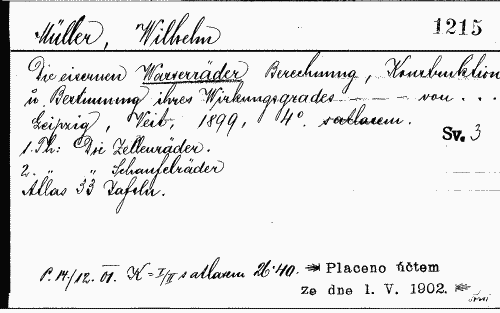 Müller, Wilhelm 1215
Die eisernen Wasserräder Berechnung, Konstruktion
u. Bestimmung ihres Wirkungsgrades - - - von . . .
Leipzig, Veit, 1899, 4°. s atlasem.
Sv. 3
1. Th: Die Zellenräder.
2. " " Schaufelräder
Atlas 33 Tafeln.
P. 14./12. 01. K = I/II s atlasem 26·40. Placeno účtem
ze dne 1. V. 1902.